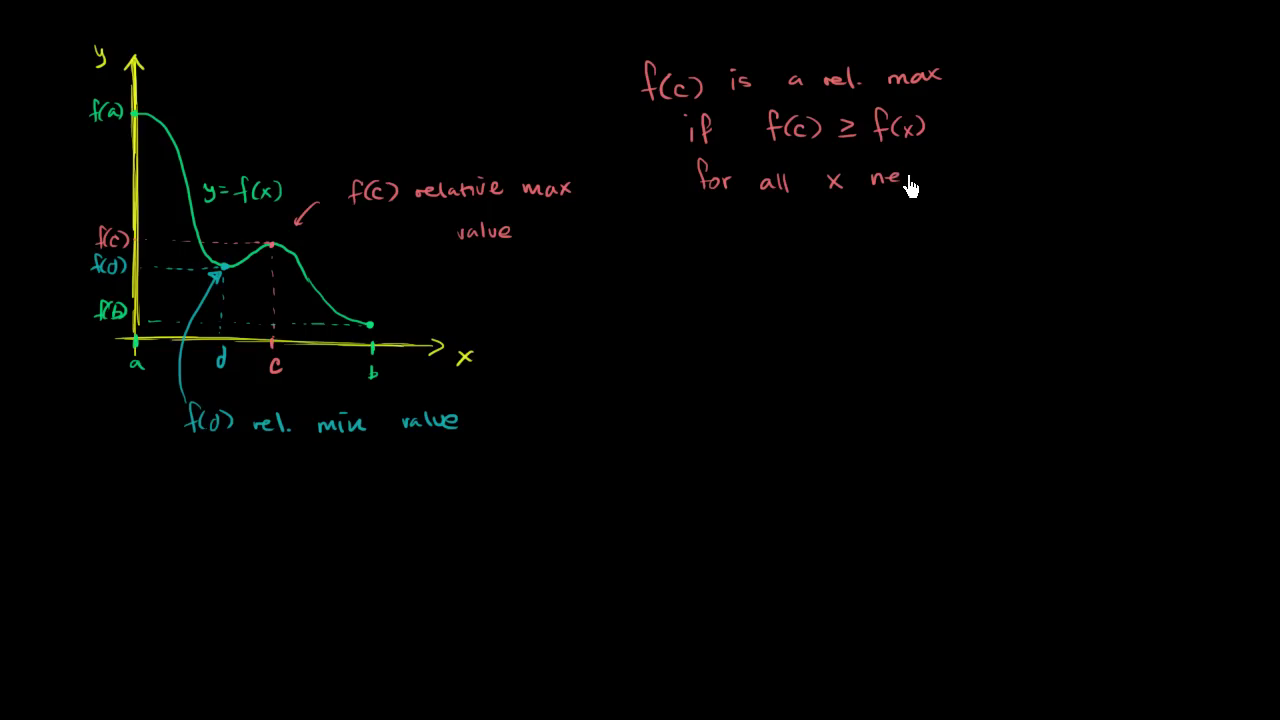 y
f(a)
y = f(x)
f(c) relative max
value
f(c)
f(d)
f(b)
a
d
c
b
x
f(d) rel. min value
f(c) is a rel. max
if f(c) ≥ f(x)
for all x ne